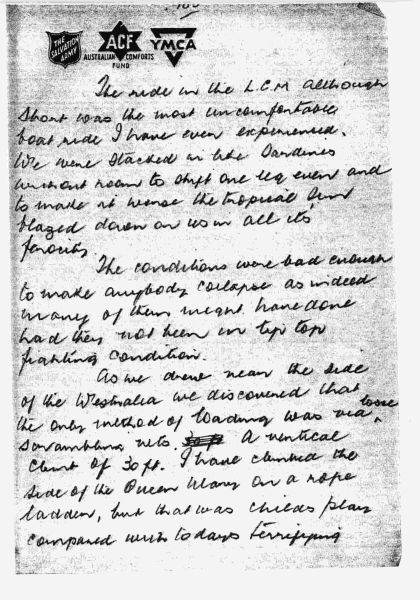 THE
SALVATION
ARMY
ACF
AUSTRALIAN COMFORTS
FUND
YMCA
The ride in the L.C.M although
short was the most uncomfortable
boat ride I have ever experienced.
We were stacked in like Sardines
without room to shift one leg even and
to make it worse the tropical sun
blazed down on us in all its
ferocity
The conditions were bad enough
to make anybody collapse as indeed
many of them might have done
had they not been in tip top
fighting condition.
As we drew near the side
of the Westralia we discovered that
the only method of loading was via loose
scrambling nets. A vertical
climb of 30 ft. I have climbed the
side of the Queen Mary on a rope
ladder, but that was childs play
compared with todays terrifying